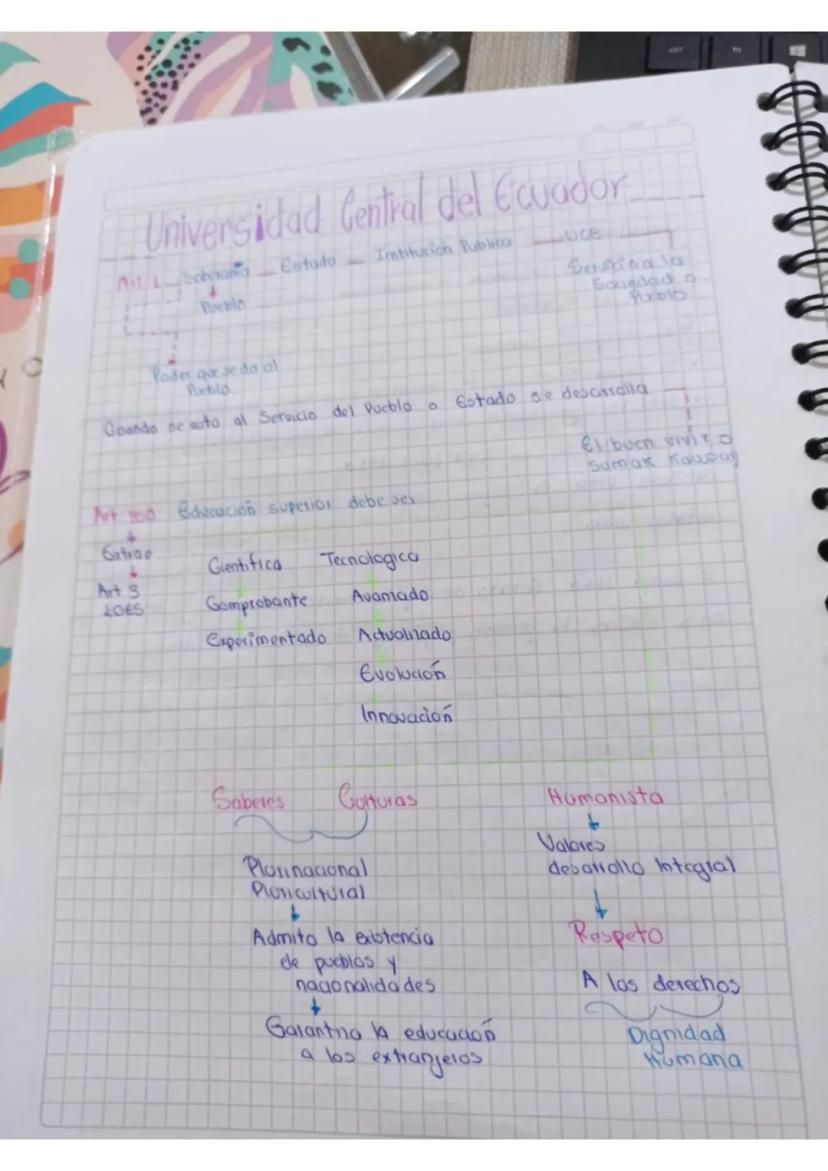 Universidad Central del Ecuador
Art. 1 Soberanía Estado Institución Publica UCE
Pueblo
Servicio a la
Sociedad o
Pueblo
Poder que se da al
Pueblo
Cuando se esta al Servicio del Pueblo o Estado se desarrolla
El buen vivir o
sumak Kawsay
Art 350 Educación superior debe ser
Extrae
Art 3
LOES
Cientifica Tecnologica
Comprobante Avanzado
Experimentado Actualizado
Evolución
Innovación
Saberes Culturas Humanista
Valores
desarrollo Integral
Plurinacional
Pluricultural
Respeto
Admito la existencia
de pueblos y
nacionalidades
A los derechos
Garantiza la educación
a los extranjeros
Dignidad
Humana